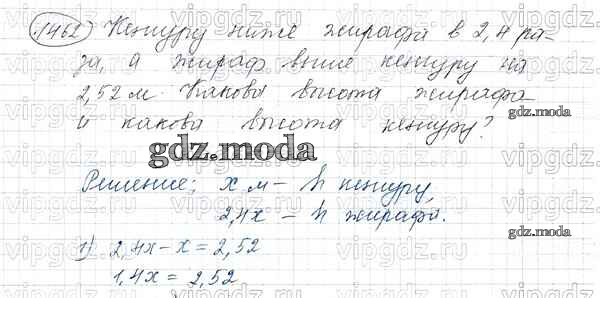 1462) Кенгуру ниже жирафа в 2,4 ра-
за, а жираф выше кенгуру на
2,52 м. Какова высота жирафа
и какова высота кенгуру?
gdz.moda
gdz.moda
Решение: x м – h кенгуру,
2,4x – h жирафа.
gdz.moda
1) 2,4x – x = 2,52
1,4x = 2,52
vipgdz.ru